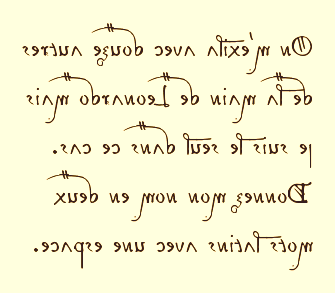 On m'exila avec douze autres
de la main de Leonardo mais
je suis le seul dans ce cas.
Donnez mon nom en deux
mots latins avec une espace.